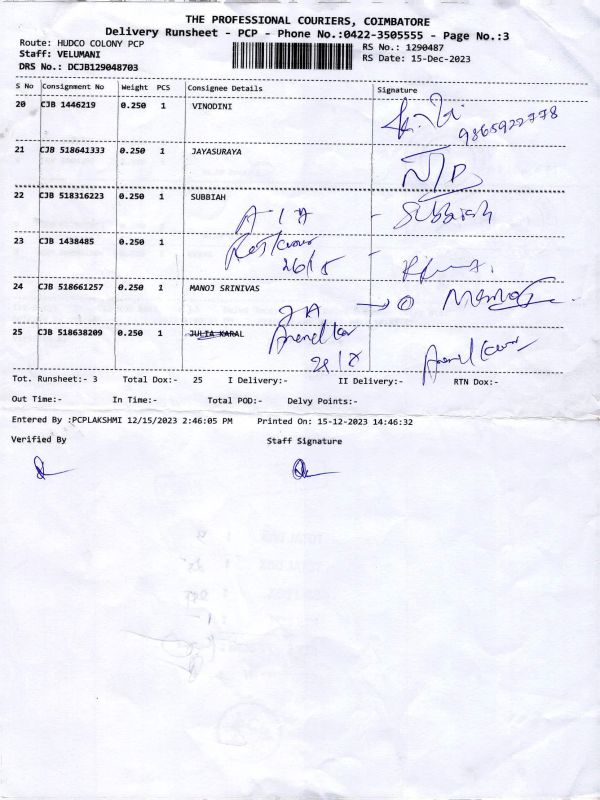 THE PROFESSIONAL COURIERS, COIMBATORE
Delivery Runsheet - PCP - Phone No.:0422-3505555 - Page No.:3
Route: HUDCO COLONY PCP RS No.: 1290487
Staff: VELUMANI RS Date: 15-Dec-2023
DRS No.: DCJB129048703
S No Consignment No Weight PCS Consignee Details Signature
20 CJB 1446219 0.250 1 VINODINI
9865922778
21 CJB 518641333 0.250 1 JAYASURAYA
22 CJB 518316223 0.250 1 SUBBIAH
Subbiah
23 CJB 1438485 0.250 1
24 CJB 518661257 0.250 1 MANOJ SRINIVAS
25 CJB 518638209 0.250 1 JULIA KARAL
Tot. Runsheet:- 3 Total Dox:- 25 I Delivery:- II Delivery:- RTN Dox:-
Out Time:- In Time:- Total POD:- Delvy Points:-
Entered By :PCPLAKSHMI 12/15/2023 2:46:05 PM Printed On: 15-12-2023 14:46:32
Verified By Staff Signature